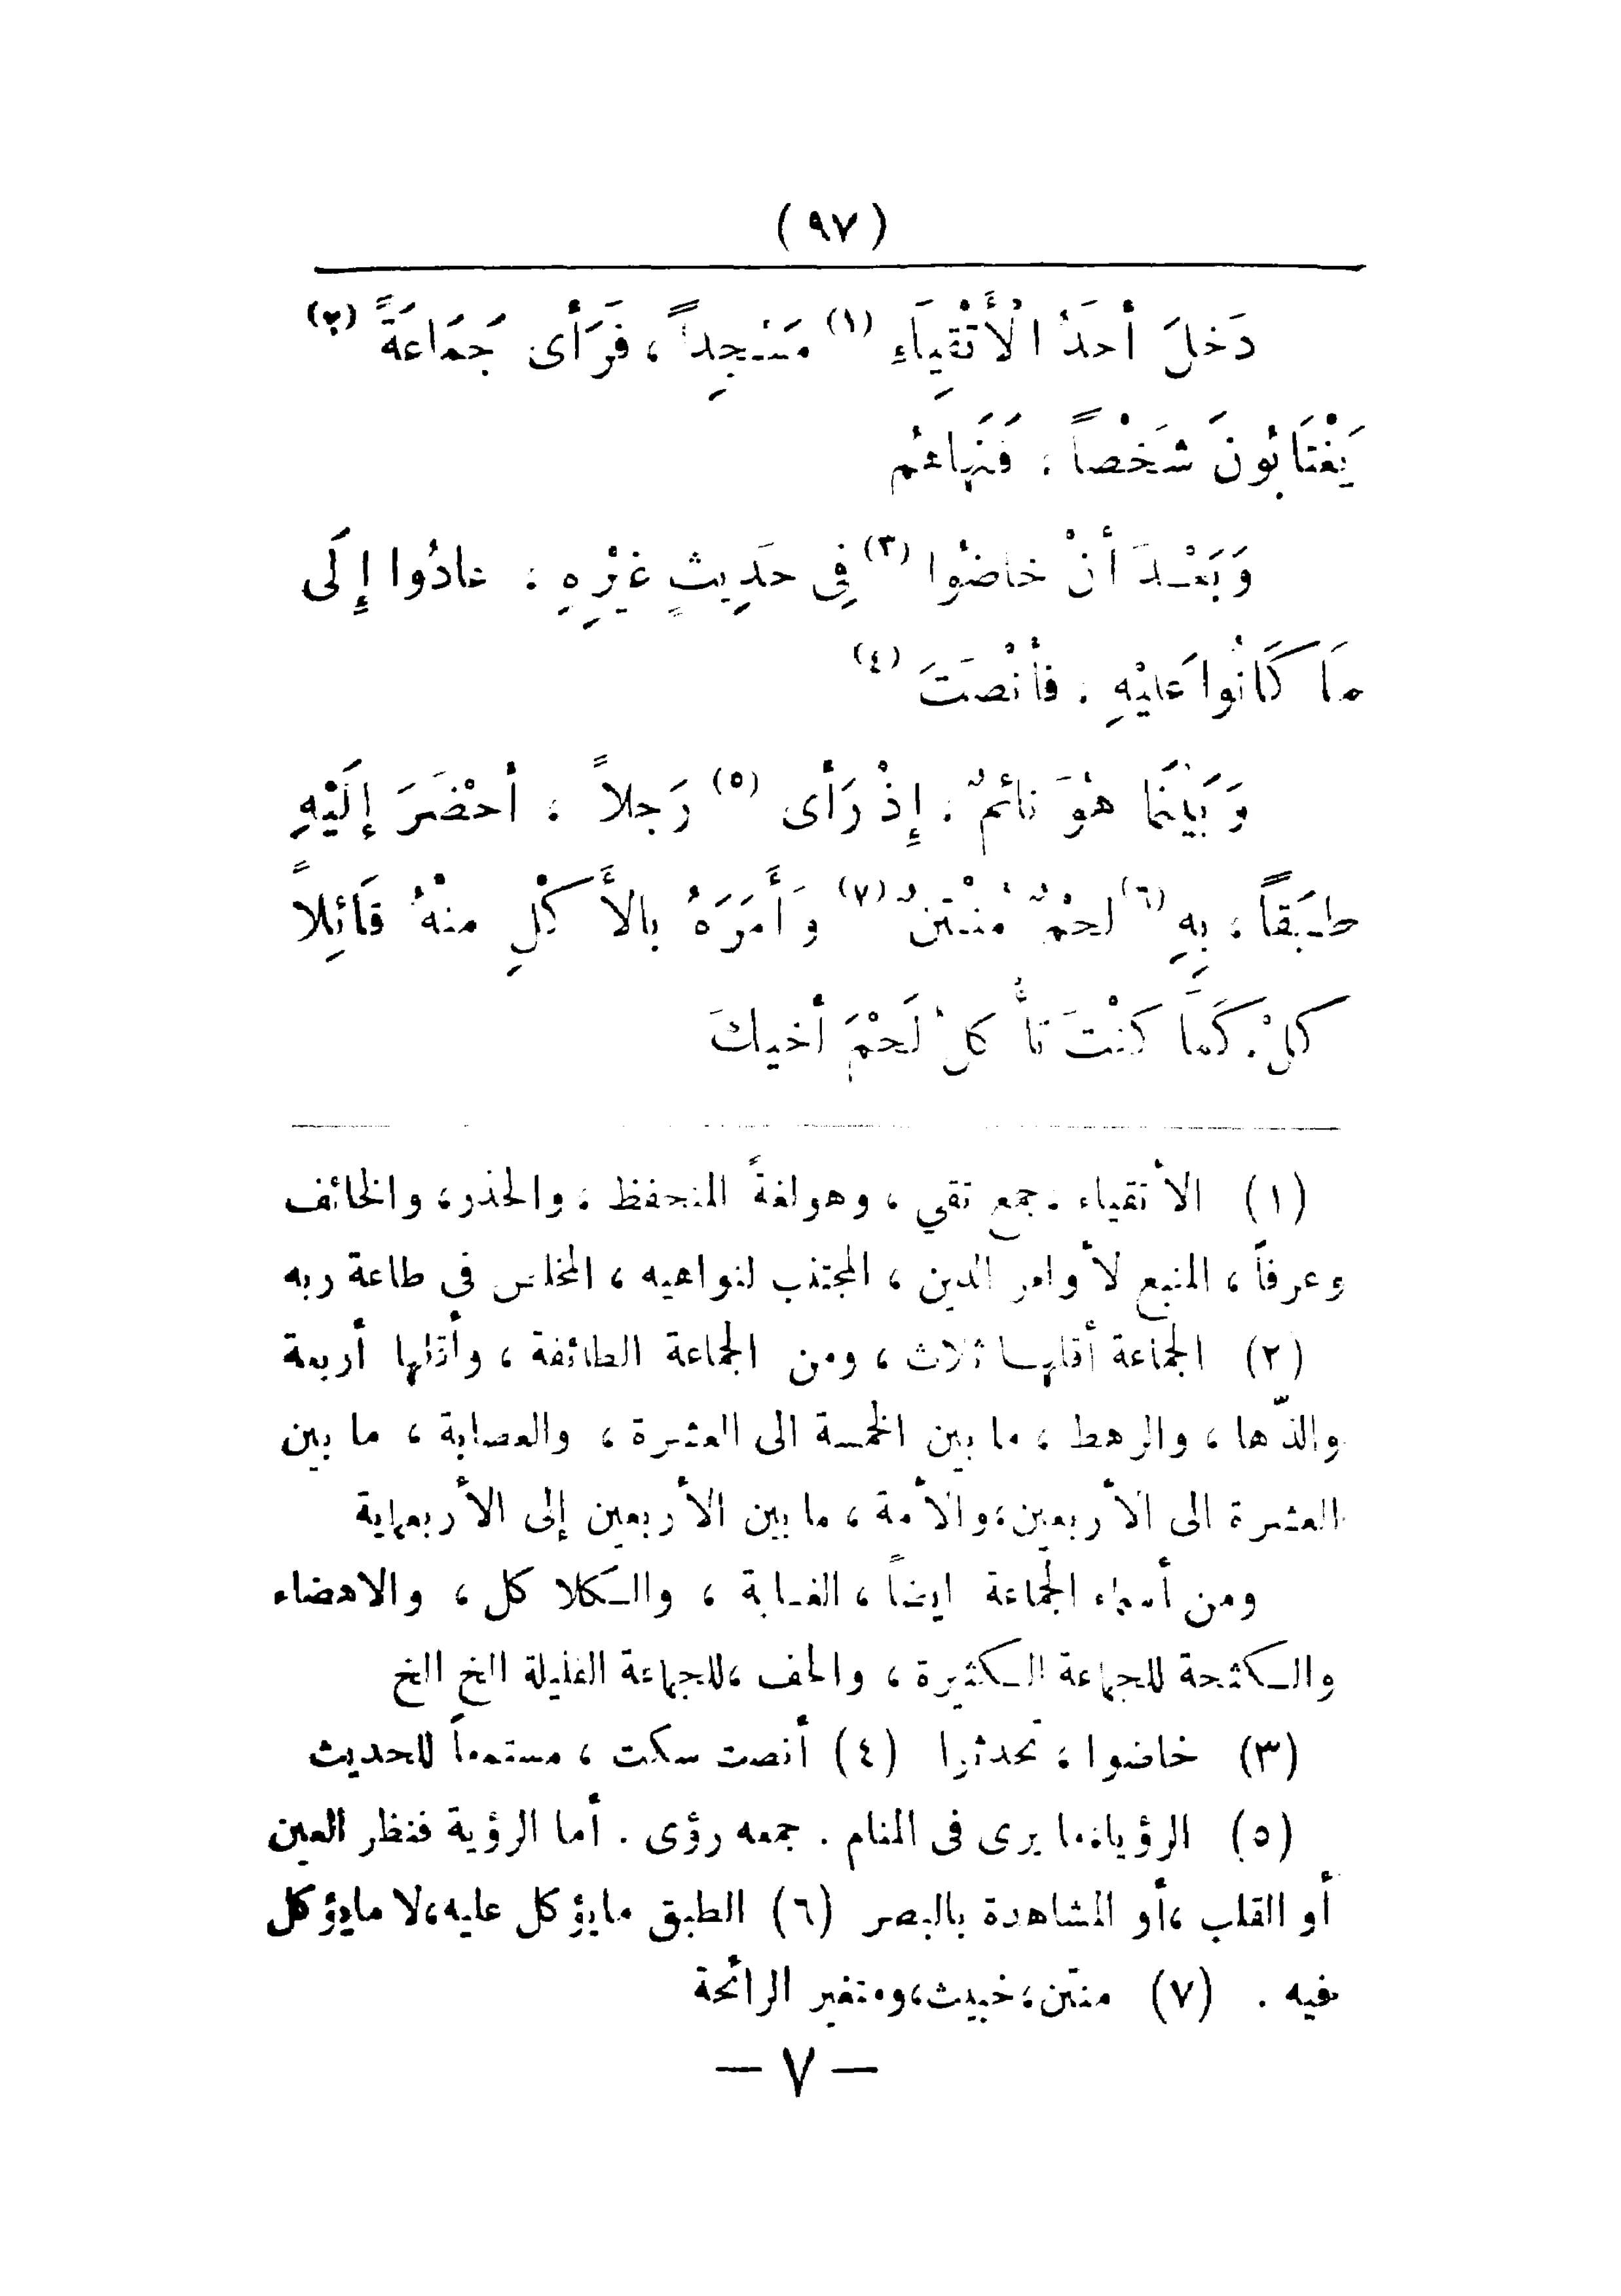 ( ٩٧ )
دَخلَ أحَدُ الْأَتْقِيَاءِ (١) مَسْجِداً ، فَرَأى جَمَاعَةً (٢)
يَغْتَابُونَ شَخْصاً ، فَنَهاهُم
وَبَعْدَ أنْ خاضُوا (٣) فِى حَدِيثٍ غيْرِهِ ، عادُوا إِلَى
مَا كَانُوا عَليْهِ . فأنْصَتَ (٤)
وَبَيْنَما هُوَ نائمٌ ، إِذْ رَأى (٥) رَجلاً ، أحْضَرَ إلَيْهِ
طبَقاً ، بِهِ (٦) لحْمٌ مُنْتنٌ (٧) وَأَمَرَهُ بالأَكْلِ منْهُ قَائِلاً
كلْ . كَمَا كنْتَ تأْكلُ لَحْمَ أخيكَ
(١) الأتقياء . جمع تقي ، وهو لغةً المتحفظ ، والحذر ، والخائف
وعرفاً ، المتبع لأوامر الدين ، المجتذب لنواهيه ، المخلص فى طاعة ربه
(٢) الجماعة أقلها ثلاث ، ومن الجماعة الطائفة ، وأقلها أربعة
والذّها ، والرهط ، ما بين الخمسة الى العشرة ، والعصابة ، ما بين
العشرة الى الأربعين ، والأمة ، ما بين الأربعين إلى الأربعماية
ومن أسماء الجماعة ايضاً ، الغـابة ، والـكلا كل ، والاهضاء
والـكثحة للجماعة الـكثيرة ، والحف ، للجماعة القليلة الخ الخ
(٣) خاضوا ، تحدثوا (٤) أنصت سكت ، مستمعاً للحديث
(٥) الرؤيا ، ما يرى فى المنام . جمعه رؤى . أما الرؤية فنظر العين
أو القلب ، أو المشاهدة بالبصر (٦) الطبق مايؤكل عليه ، لا مايؤكل
فيه . (٧) منتن ، خبيث ، ومتغير الرائحة
— ٧ —